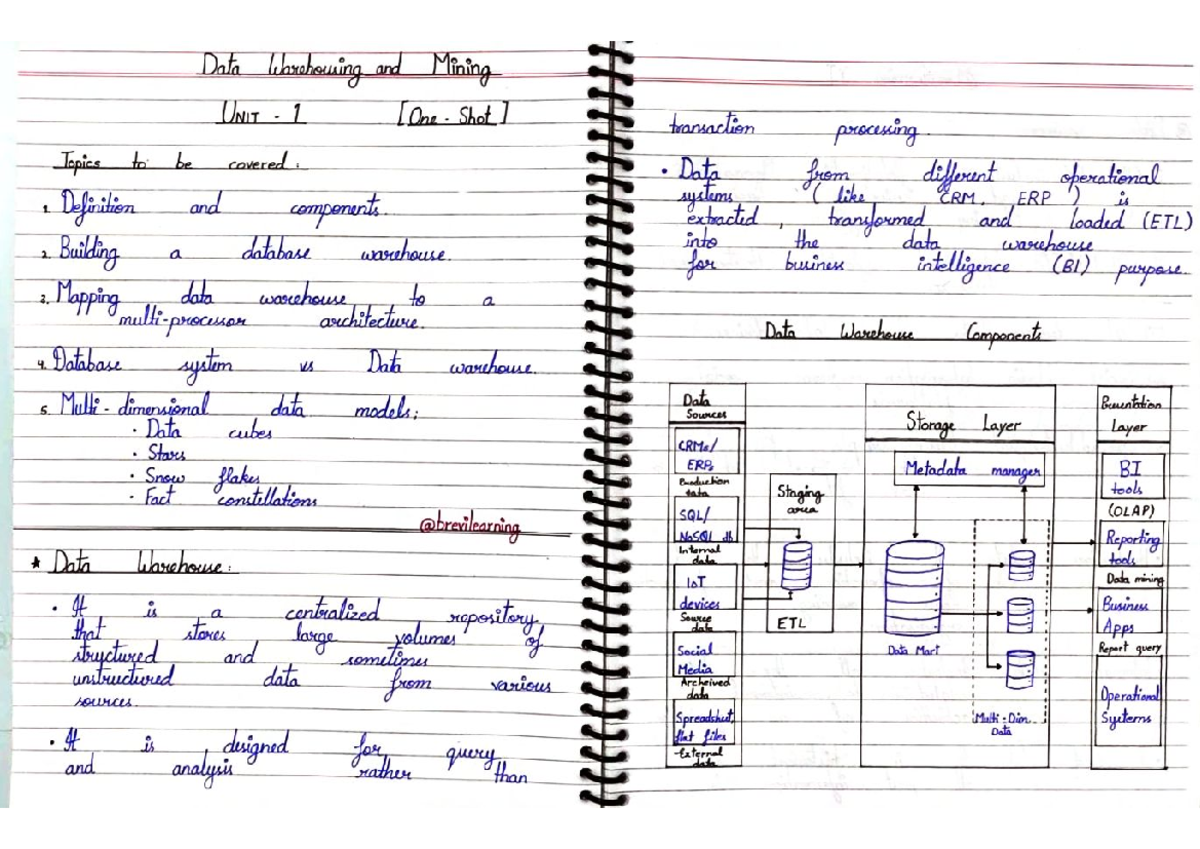 Data Warehousing and Mining
UNIT - 1 [One - Shot]
Topics to be covered:
1. Definition and components.
2. Building a database warehouse.
3. Mapping data warehouse to a
multi-processor architecture.
4. Database system vs Data warehouse.
5. Multi-dimensional data models;
• Data cubes
• Stars
• Snow flakes
• Fact constellations
@brevilearning
★ Data Warehouse:
• It is a centralized repository
that stores large volumes of
structured and sometimes
unstructured data from various
sources.
• It is designed for query
and analysis rather than
transaction processing.
• Data from different operational
systems (like CRM, ERP) is
extracted, transformed and loaded (ETL)
into the data warehouse
for business intelligence (BI) purpose.
Data Warehouse Components
Data
Sources
CRMs/
ERPs
Production
data
SQL/
NoSQL db
Internal
data
IoT
devices
Source
data
Social
Media
Archeived
data
Spreadsheet,
flat files
External
data
Staging
area
ETL
Storage Layer
Metadata manager
Data Mart
Multi-Dim.
Data
Presentation
Layer
BI
tools
(OLAP)
Reporting
tools
Data mining
Business
Apps
Report query
Operational
Systems